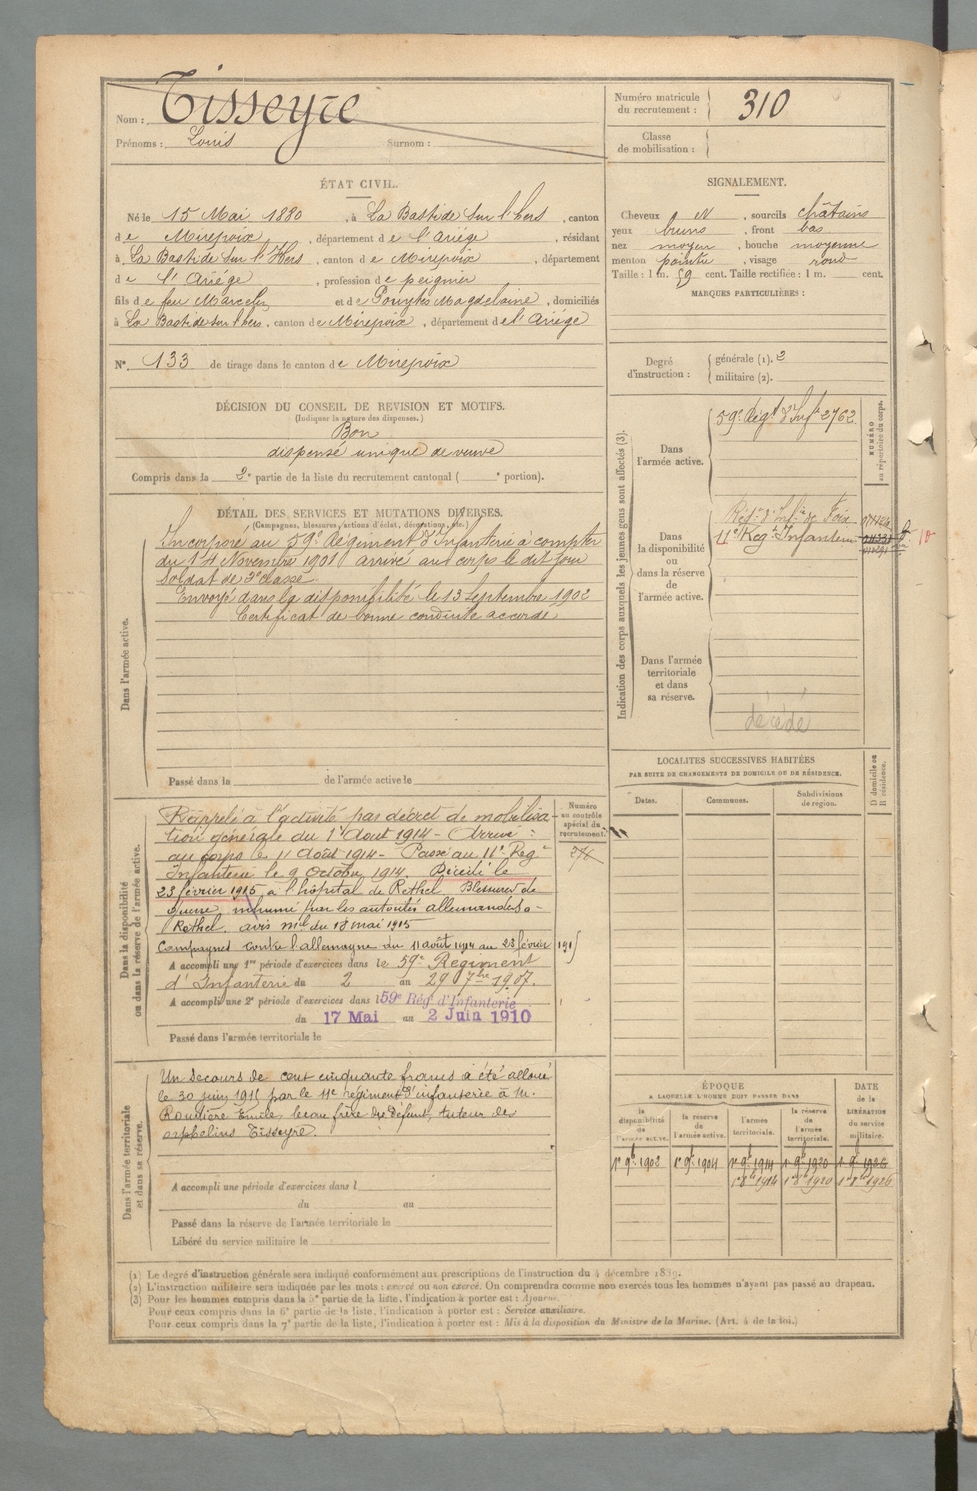 Nom : Tisseyre
Prénoms : Louis Surnom :
Numéro matricule du recrutement : 310
Classe de mobilisation :
ÉTAT CIVIL.
Né le 15 Mai 1880, à La Bastide sur l'hers, canton
de Mirepoix, département de l'Ariége, résidant
à La Bastide sur l'Hers, canton de Mirepoix, département
de l'Ariége, profession de peignier
fils de feu Marcelin et de Pouytès Magdelaine, domiciliés
à La Bastide sur l'hers, canton de Mirepoix, département de l'Ariége
N° 133 de tirage dans le canton de Mirepoix
SIGNALEMENT.
Cheveux N, sourcils châtains
yeux bruns, front bas
nez moyen, bouche moyenne
menton pointu, visage rond
Taille : 1 m. 59 cent. Taille rectifiée : 1 m. cent.
MARQUES PARTICULIÈRES :
Degré d'instruction : générale (1). 2
militaire (2).
DÉCISION DU CONSEIL DE REVISION ET MOTIFS.
(Indiquer la nature des dispenses.)
Bon
dispensé unique de veuve
Compris dans la 2e partie de la liste du recrutement cantonal ( e portion).
DÉTAIL DES SERVICES ET MUTATIONS DIVERSES.
(Campagnes, blessures, actions d'éclat, décorations, etc.)
Dans l'armée active.
Incorporé au 59e Régiment d'Infanterie à compter
du 14 Novembre 1901 arrivé au corps le dit jour
Soldat de 2e classe
Envoyé dans la disponibilité le 13 Septembre 1902
Certificat de bonne conduite accordé
Passé dans la de l'armée active le
Indication des corps auxquels les jeunes gens sont affectés (3).
NUMÉRO au répertoire du corps.
Dans l'armée active.
59e Régt d'Infie 2762
Dans la disponibilité ou dans la réserve de l'armée active.
Régt d'Infie de Foix
11e Régt Infanterie
Dans l'armée territoriale et dans sa réserve.
décédé
LOCALITÉS SUCCESSIVES HABITÉES
PAR SUITE DE CHANGEMENTS DE DOMICILE OU DE RÉSIDENCE.
Dates. Communes. Subdivisions de région. D domicile ou R résidence.
Dans la disponibilité ou dans la réserve de l'armée active.
Numéro au contrôle spécial du recrutement.
276
Rappelé à l'activité par décret de mobilisa-
tion générale du 1er Août 1914 - Arrivé :
au corps le 11 Août 1914 - Passé au 11e Régt
Infanterie le 9 octobre 1914. Décédé le
23 février 1915 à l'hôpital de Rethel. Blessures de
guerre, inhumé par les autorités allemandes à
Rethel. avis mel du 18 mai 1915
Campagnes contre l'allemagne du 11 août 1914 au 23 février 1915
A accompli une 1re période d'exercices dans le 59e Régiment
d'Infanterie du 2 au 29 7bre 1907.
A accompli une 2e période d'exercices dans l 59e Rég. d'Infanterie
du 17 Mai au 2 Juin 1910
Passé dans l'armée territoriale le
Dans l'armée territoriale et dans sa réserve.
Un secours de cent cinquante francs a été alloué
le 30 juin 1915 par le 11e régiment d'infanterie à M.
Roudière Emile, beau frère du défunt, tuteur des
orphelins Tisseyre.
A accompli une période d'exercices dans l
du au
Passé dans la réserve de l'armée territoriale le
Libéré du service militaire le
ÉPOQUE
A LAQUELLE L'HOMME DOIT PASSER DANS
DATE de la LIBÉRATION du service militaire.
la disponibilité de l'armée active. la réserve de l'armée active. l'armée territoriale. la réserve de l'armée territoriale.
1er 9bre 1902 1er 9bre 1904 1er 9bre 1914 1er 9bre 1920 1er 9bre 1926
1er 8bre 1914 1er 8bre 1920 1er 8bre 1926
(1) Le degré d'instruction générale sera indiqué conformément aux prescriptions de l'instruction du 4 décembre 1889.
(2) L'instruction militaire sera indiquée par les mots : exercé ou non exercé. On comprendra comme non exercés tous les hommes n'ayant pas passé au drapeau.
(3) Pour les hommes compris dans la 5e partie de la liste, l'indication à porter est : Ajourné.
Pour ceux compris dans la 6e partie de la liste, l'indication à porter est : Service auxiliaire.
Pour ceux compris dans la 7e partie de la liste, l'indication à porter est : Mis à la disposition du Ministre de la Marine. (Art. 4 de la loi.)